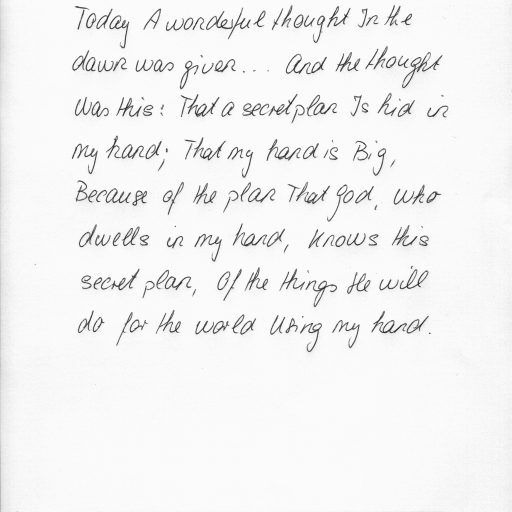 Today A wonderful thought In the
dawn was given... And the thought
Was this: That a secret plan Is hid in
my hand; That my hand is Big,
Because of the plan That God, who
dwells in my hand, Knows this
secret plan, Of the things He will
do for the world Using my hand.